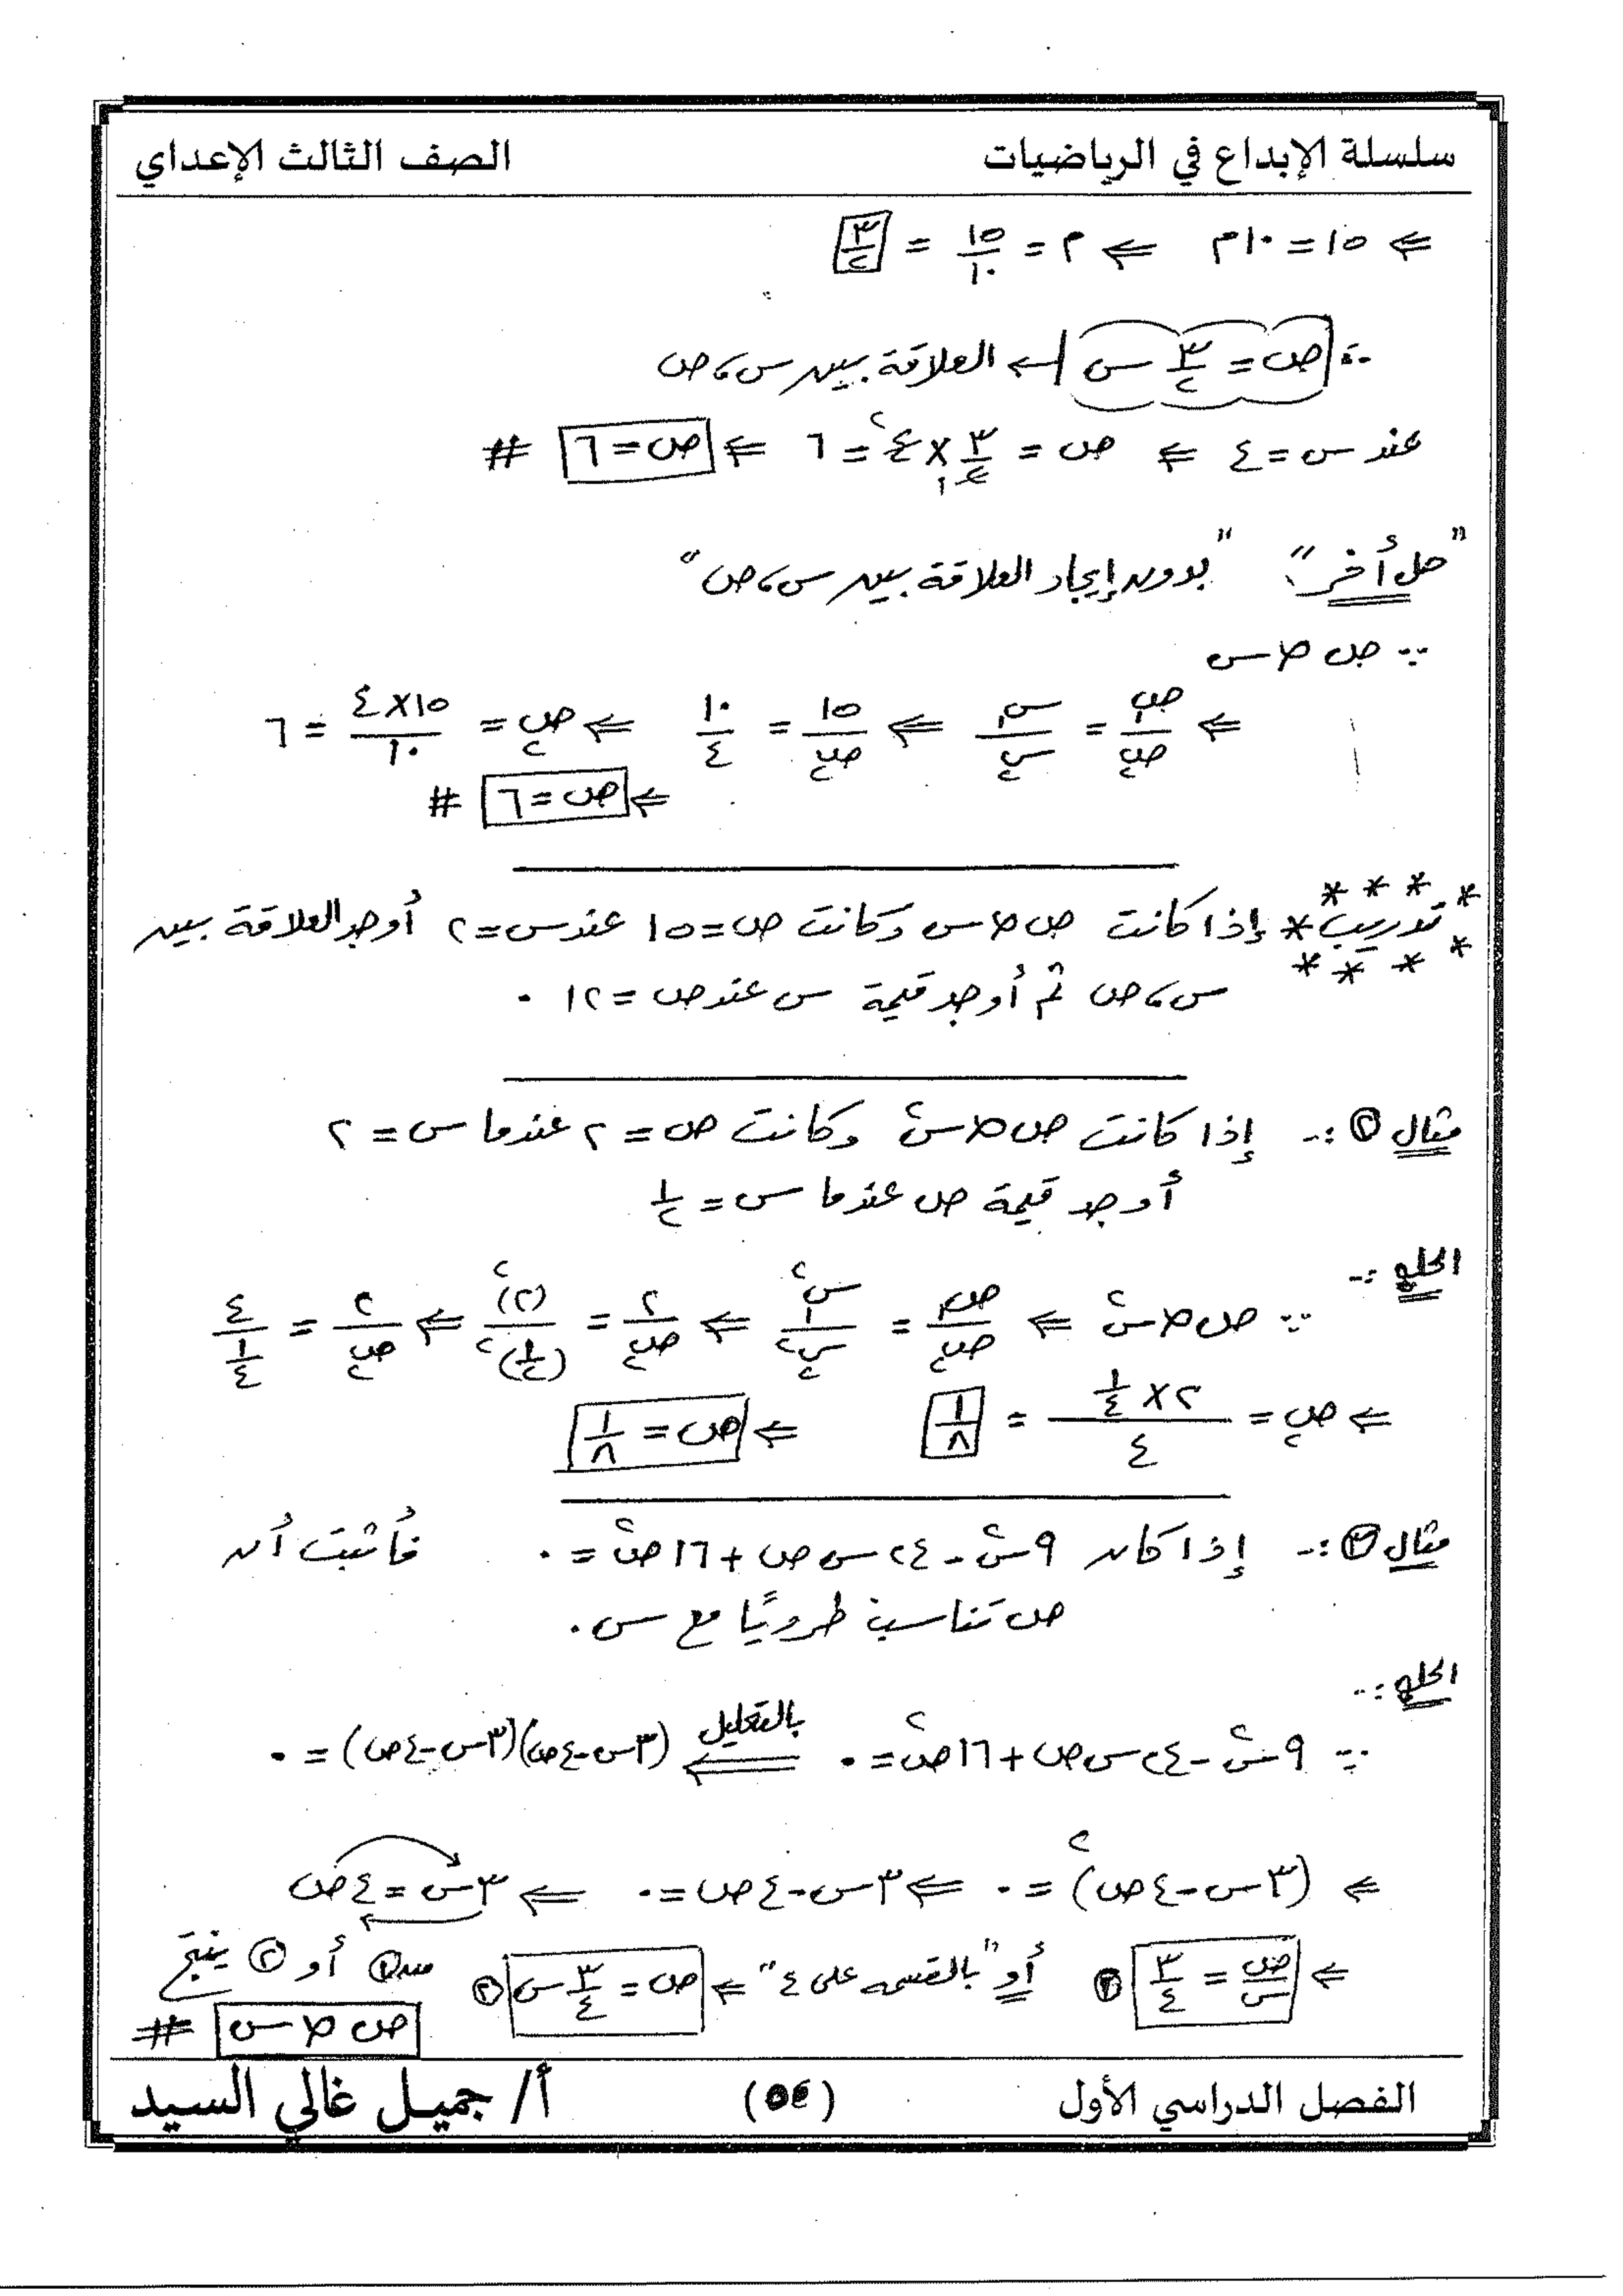 سلسلة الإبداع في الرياضيات
الصف الثالث الإعداي
⇐ ١٥ = ١٠م ⇐ م = ١٥/١٠ = ٣/٢
∴ ص = ٣/٢ س ← العلاقة بين س، ص
عند س = ٤ ⇐ ص = ٣/٢ × ٤ = ٦ ⇐ ص = ٦ #
"حل أخر" "بدون إيجاد العلاقة بين س، ص"
∵ ص ∝ س
⇐ ص١/ص٢ = س١/س٢ ⇐ ١٥/ص٢ = ١٠/٤ ⇐ ص٢ = ١٥×٤/١٠ = ٦
⇐ ص = ٦ #
تدريب * إذا كانت ص ∝ س وكانت ص = ١٥ عند س = ٢ أوجد العلاقة بين
س، ص ثم أوجد قيمة س عند ص = ١٢ .
مثال ② :- إذا كانت ص ∝ س² وكانت ص = ٢ عندما س = ٢
أوجد قيمة ص عندما س = ١/٢
الحل :-
∵ ص ∝ س² ⇐ ص١/ص٢ = س١²/س٢² ⇐ ٢/ص٢ = (٢)²/(١/٢)² ⇐ ٢/ص٢ = ٤/(١/٤)
⇐ ص٢ = (٢ × ١/٤)/٤ = ١/٨ ⇐ ص = ١/٨
مثال ③ :- إذا كان ٩س² - ٢٤ س ص + ١٦ص² = ٠ فأثبت أن
ص تناسب طرديًا مع س .
الحل :-
∵ ٩س² - ٢٤ س ص + ١٦ص² = ٠ بالتحليل ⇐ (٣س - ٤ص)(٣س - ٤ص) = ٠
⇐ (٣س - ٤ص)² = ٠ ⇐ ٣س - ٤ص = ٠ ⇐ ٣س = ٤ص
⇐ ص/س = ٣/٤ ① أو "بالقسمه على ٤" ⇐ ص = ٣/٤ س ② من ① أو ② ينتج
ص ∝ س #
الفصل الدراسي الأول
(٥٤)
أ/ جميل غالي السيد